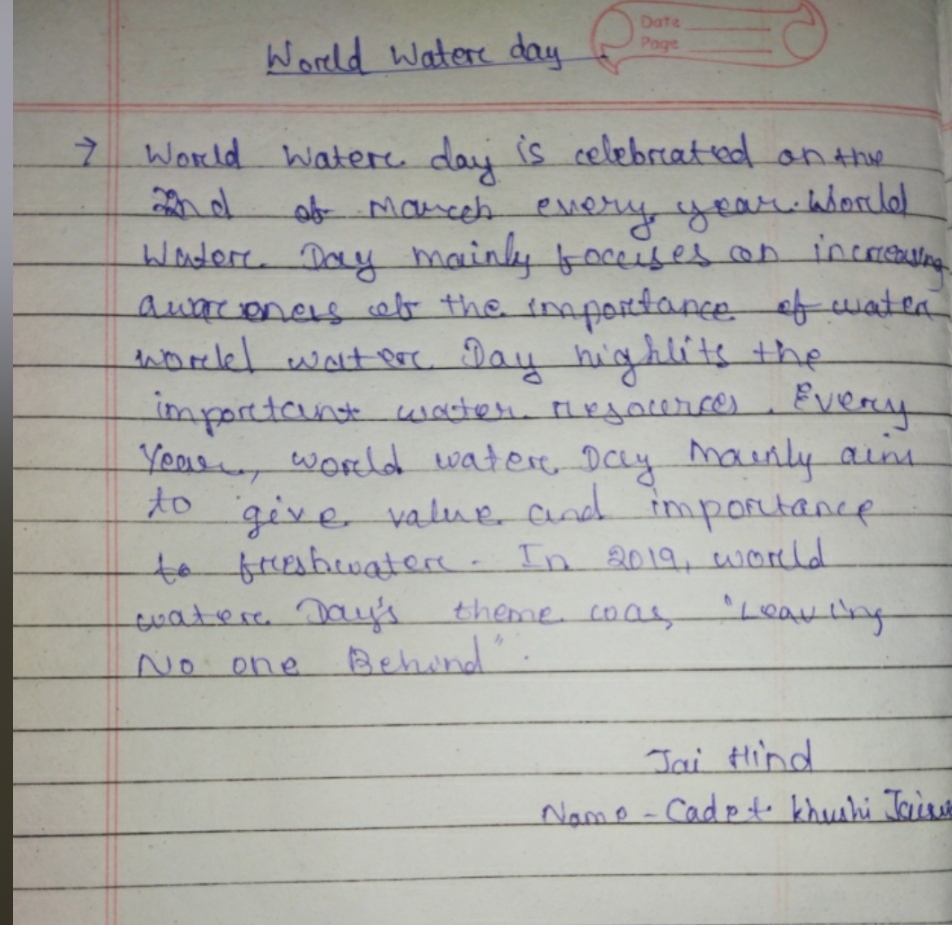 Date
Page
World Water day
→ World Water day is celebrated on the
22nd of March every year. World
Water Day mainly focuses on increasing
awareness of the importance of water
world water Day highlits the
important water resources. Every
Year, world water Day Mainly aim
to give value and importance
to freshwater. In 2019, world
water Day's theme was, "Leaving
No one Behind".
Jai Hind
Name - Cadet Khushi